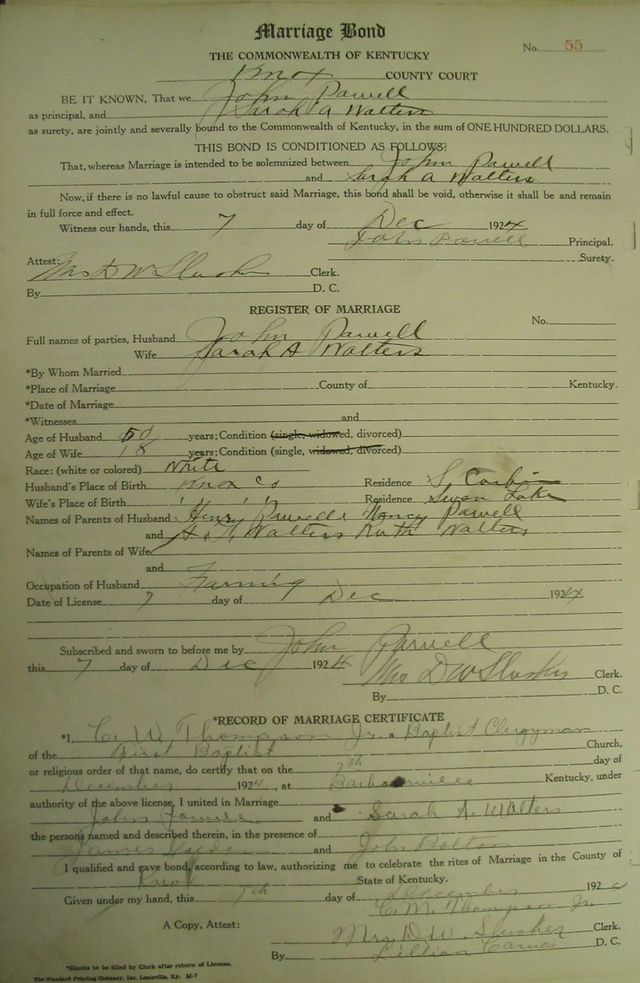 Marriage Bond
No. 55
THE COMMONWEALTH OF KENTUCKY
Knox COUNTY COURT
BE IT KNOWN, That we John Powell
as principal, and Sarah A Walters
as surety, are jointly and severally bound to the Commonwealth of Kentucky, in the sum of ONE HUNDRED DOLLARS.
THIS BOND IS CONDITIONED AS FOLLOWS:
That, whereas Marriage is intended to be solemnized between John Powell
and Sarah A Walters
Now, if there is no lawful cause to obstruct said Marriage, this bond shall be void, otherwise it shall be and remain
in full force and effect.
Witness our hands, this 7 day of Dec 1924
John Powell Principal.
Surety.
Attest:
Mrs D W Slusher Clerk.
By D. C.
REGISTER OF MARRIAGE
No.
Full names of parties, Husband John Powell
Wife Sarah A Walters
*By Whom Married
*Place of Marriage County of Kentucky.
*Date of Marriage
*Witnesses and
Age of Husband 50 years; Condition (single, widowed, divorced)
Age of Wife 18 years; Condition (single, widowed, divorced)
Race: (white or colored) White
Husband's Place of Birth Knox Co Residence S. Corbin
Wife's Place of Birth " " " Residence Swan Lake
Names of Parents of Husband Henry Powell Nancy Powell
and Walters Ruth Walters
Names of Parents of Wife
and
Occupation of Husband Farming
Date of License 7 day of Dec 1924
Subscribed and sworn to before me by John Powell
this 7 day of Dec 1924
Mrs D W Slusher Clerk.
By D. C.
*RECORD OF MARRIAGE CERTIFICATE
*I, C. M. Thompson Jr. a Baptist Clergyman
of the First Baptist Church,
or religious order of that name, do certify that on the 7th day of
December 1924, at Barbourville Kentucky, under
authority of the above license, I united in Marriage
John Powell and Sarah A. Walters
the persons named and described therein, in the presence of
James and John Bolton
I qualified and gave bond, according to law, authorizing me to celebrate the rites of Marriage in the County of
Knox State of Kentucky.
Given under my hand, this 7th day of December 192
C. M. Thompson Jr.
A Copy, Attest: Mrs. D. W. Slusher Clerk.
By Lillian Carnes D. C.
*Blanks to be filled by Clerk after return of License.
The Standard Printing Company, Inc. Louisville, Ky. M-7